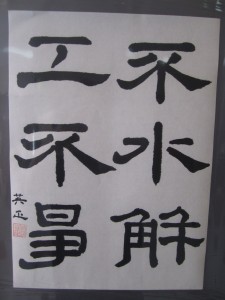 不水解
工不
英正